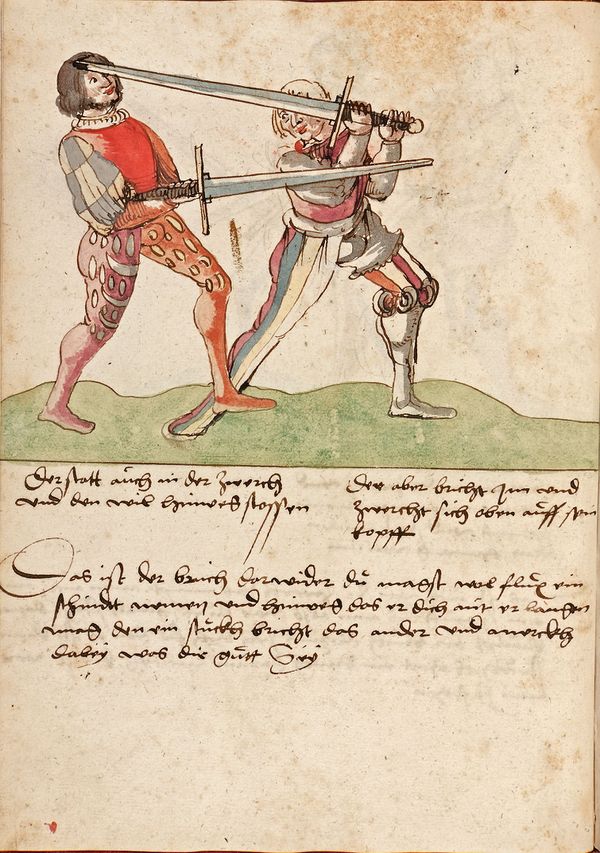 Der statt auch in der zwerch
vnd den wil hinweg stossen
Der aber bricht Jm vnd
zwercht sich oben auff sein
kopff
Das ist der bruch darwider du magst wol flux ein
schnidt nemen vnd hinweg das er dich nit er langen
mag den ein stuckh bricht das ander vnd merckh
dabey was die gutt Sey